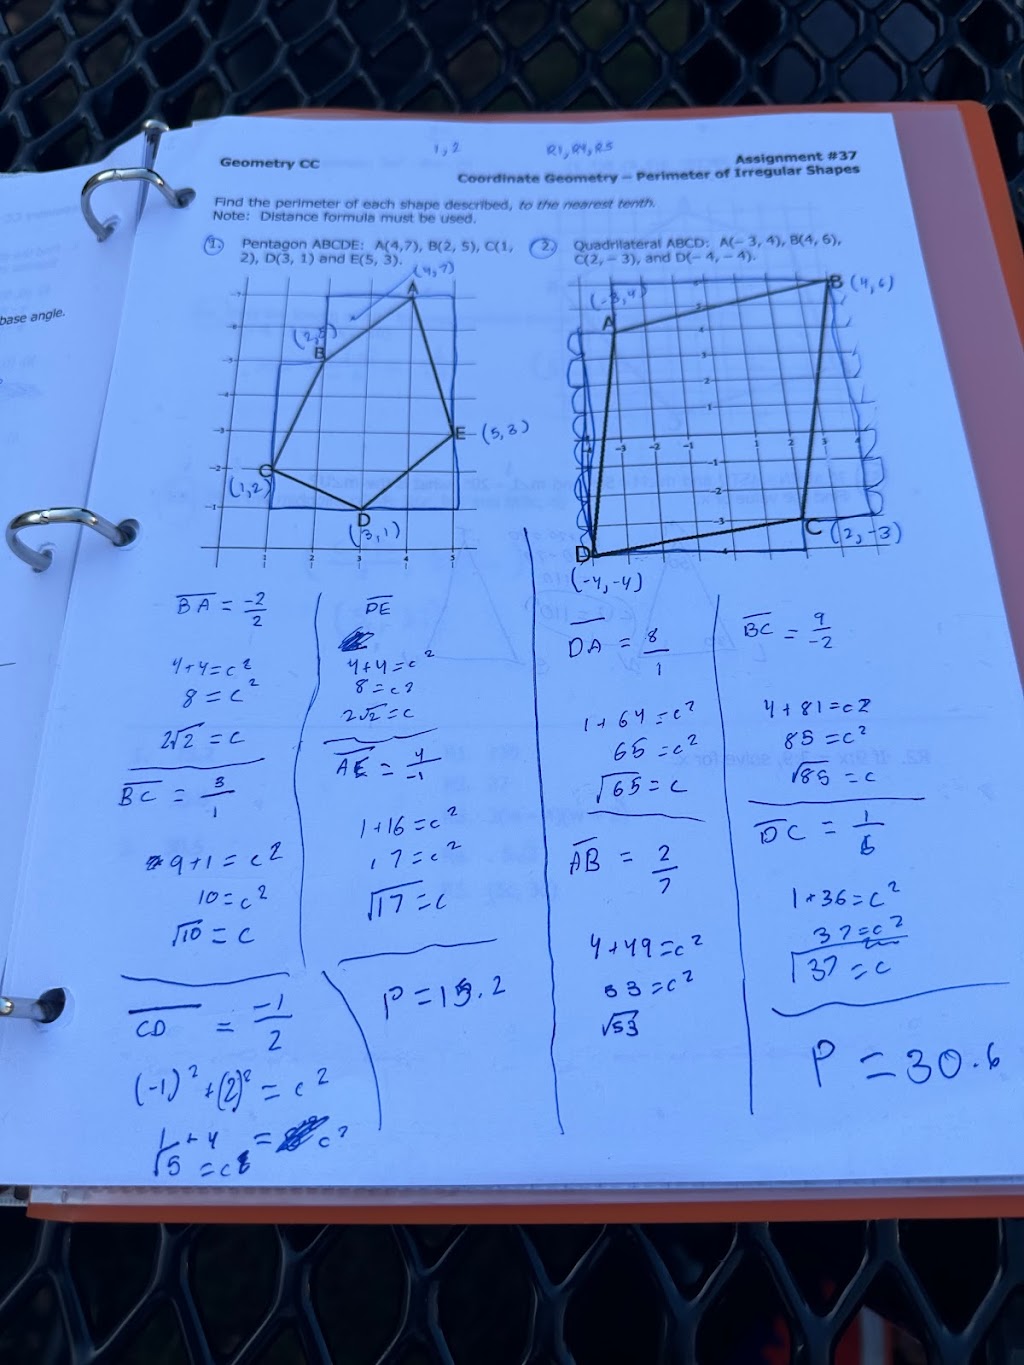 1, 2
R1, R4, R5
Geometry CC
Assignment #37
Coordinate Geometry – Perimeter of Irregular Shapes
Find the perimeter of each shape described, to the nearest tenth.
Note: Distance formula must be used.
1. Pentagon ABCDE: A(4,7), B(2, 5), C(1,
2), D(3, 1) and E(5, 3).
2. Quadrilateral ABCD: A(– 3, 4), B(4, 6),
C(2, – 3), and D(– 4, – 4).
base angle.
(4,7)
A
(2,5)
B
E (5,3)
C
(1,2)
D
(3,1)
(-3,4)
A
B (4,6)
C (2,-3)
D
(-4,-4)
BA = -2/2
4+4=c²
8=c²
2√2=c
BC = 3/1
9+1=c²
10=c²
√10=c
CD = -1/2
(-1)²+(2)²=c²
1+4=c²
√5=c
DE
4+4=c²
8=c²
2√2=c
AE = 4/-1
1+16=c²
17=c²
√17=c
P=15.2
DA = 8/1
1+64=c²
65=c²
√65=c
AB = 2/7
4+49=c²
53=c²
√53
BC = 9/-2
4+81=c²
85=c²
√85=c
DC = 1/6
1+36=c²
37=c²
√37=c
P=30.6